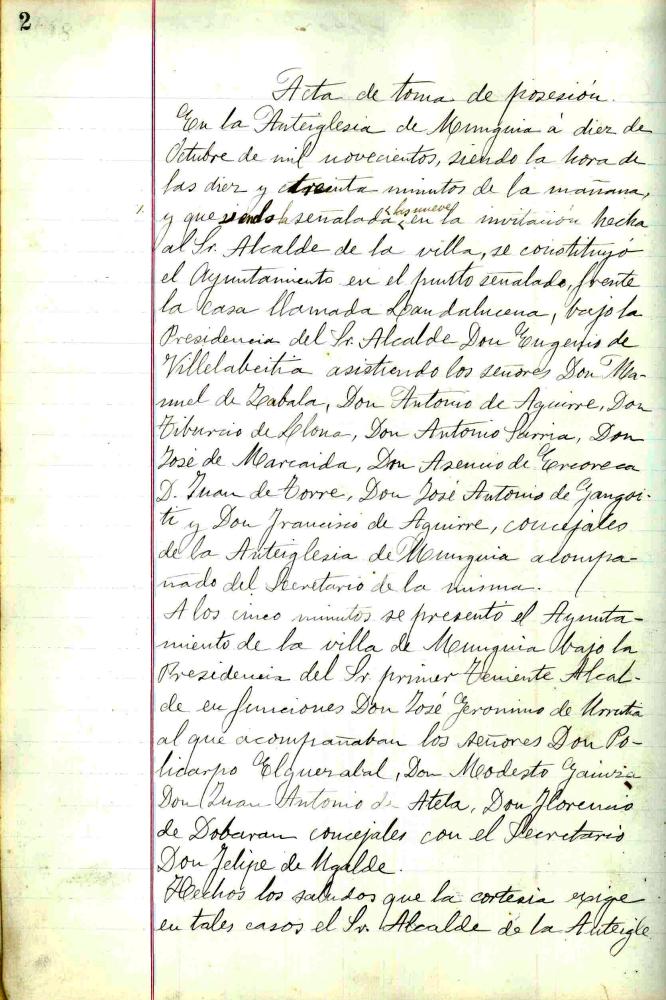 2
Acta de toma de posesión.
En la Anteiglesia de Munguia á diez de
Octubre de mil novecientos, siendo la hora de
las diez y treinta minutos de la mañana,
y que señalada las nueve en la invitación hecha
al Sr. Alcalde de la villa, se constituyó
el Ayuntamiento en el punto señalado, frente
la casa llamada Landalucena, bajo la
Presidencia del Sr. Alcalde Don Eugenio de
Villelabeitia asistiendo los señores Don Ma-
nuel de Zabala, Don Antonio de Aguirre, Don
Tiburcio de Llona, Don Antonio Sarria, Don
José de Marcaida, Don Asencio de Ercoreca
D. Juan de Torre, Don José Antonio de Gangoi-
ti y Don Francisco de Aguirre, concejales
de la Anteiglesia de Munguia acompa-
ñado del Secretario de la misma.
A los cinco minutos se presentó el Ayunta-
miento de la villa de Munguia bajo la
Presidencia del Sr. primer Teniente Alcal-
de en funciones Don José Geronimo de Urrutia
al que acompañaban los señores Don Po-
licarpo Elguezabal, Don Modesto
Don Juan Antonio de Atela, Don Florencio
de Dobaran concejales con el Secretario
Don Felipe de Ugalde.
Hechos los saludos que la cortesia exige
en tales casos el Sr. Alcalde de la Anteigle